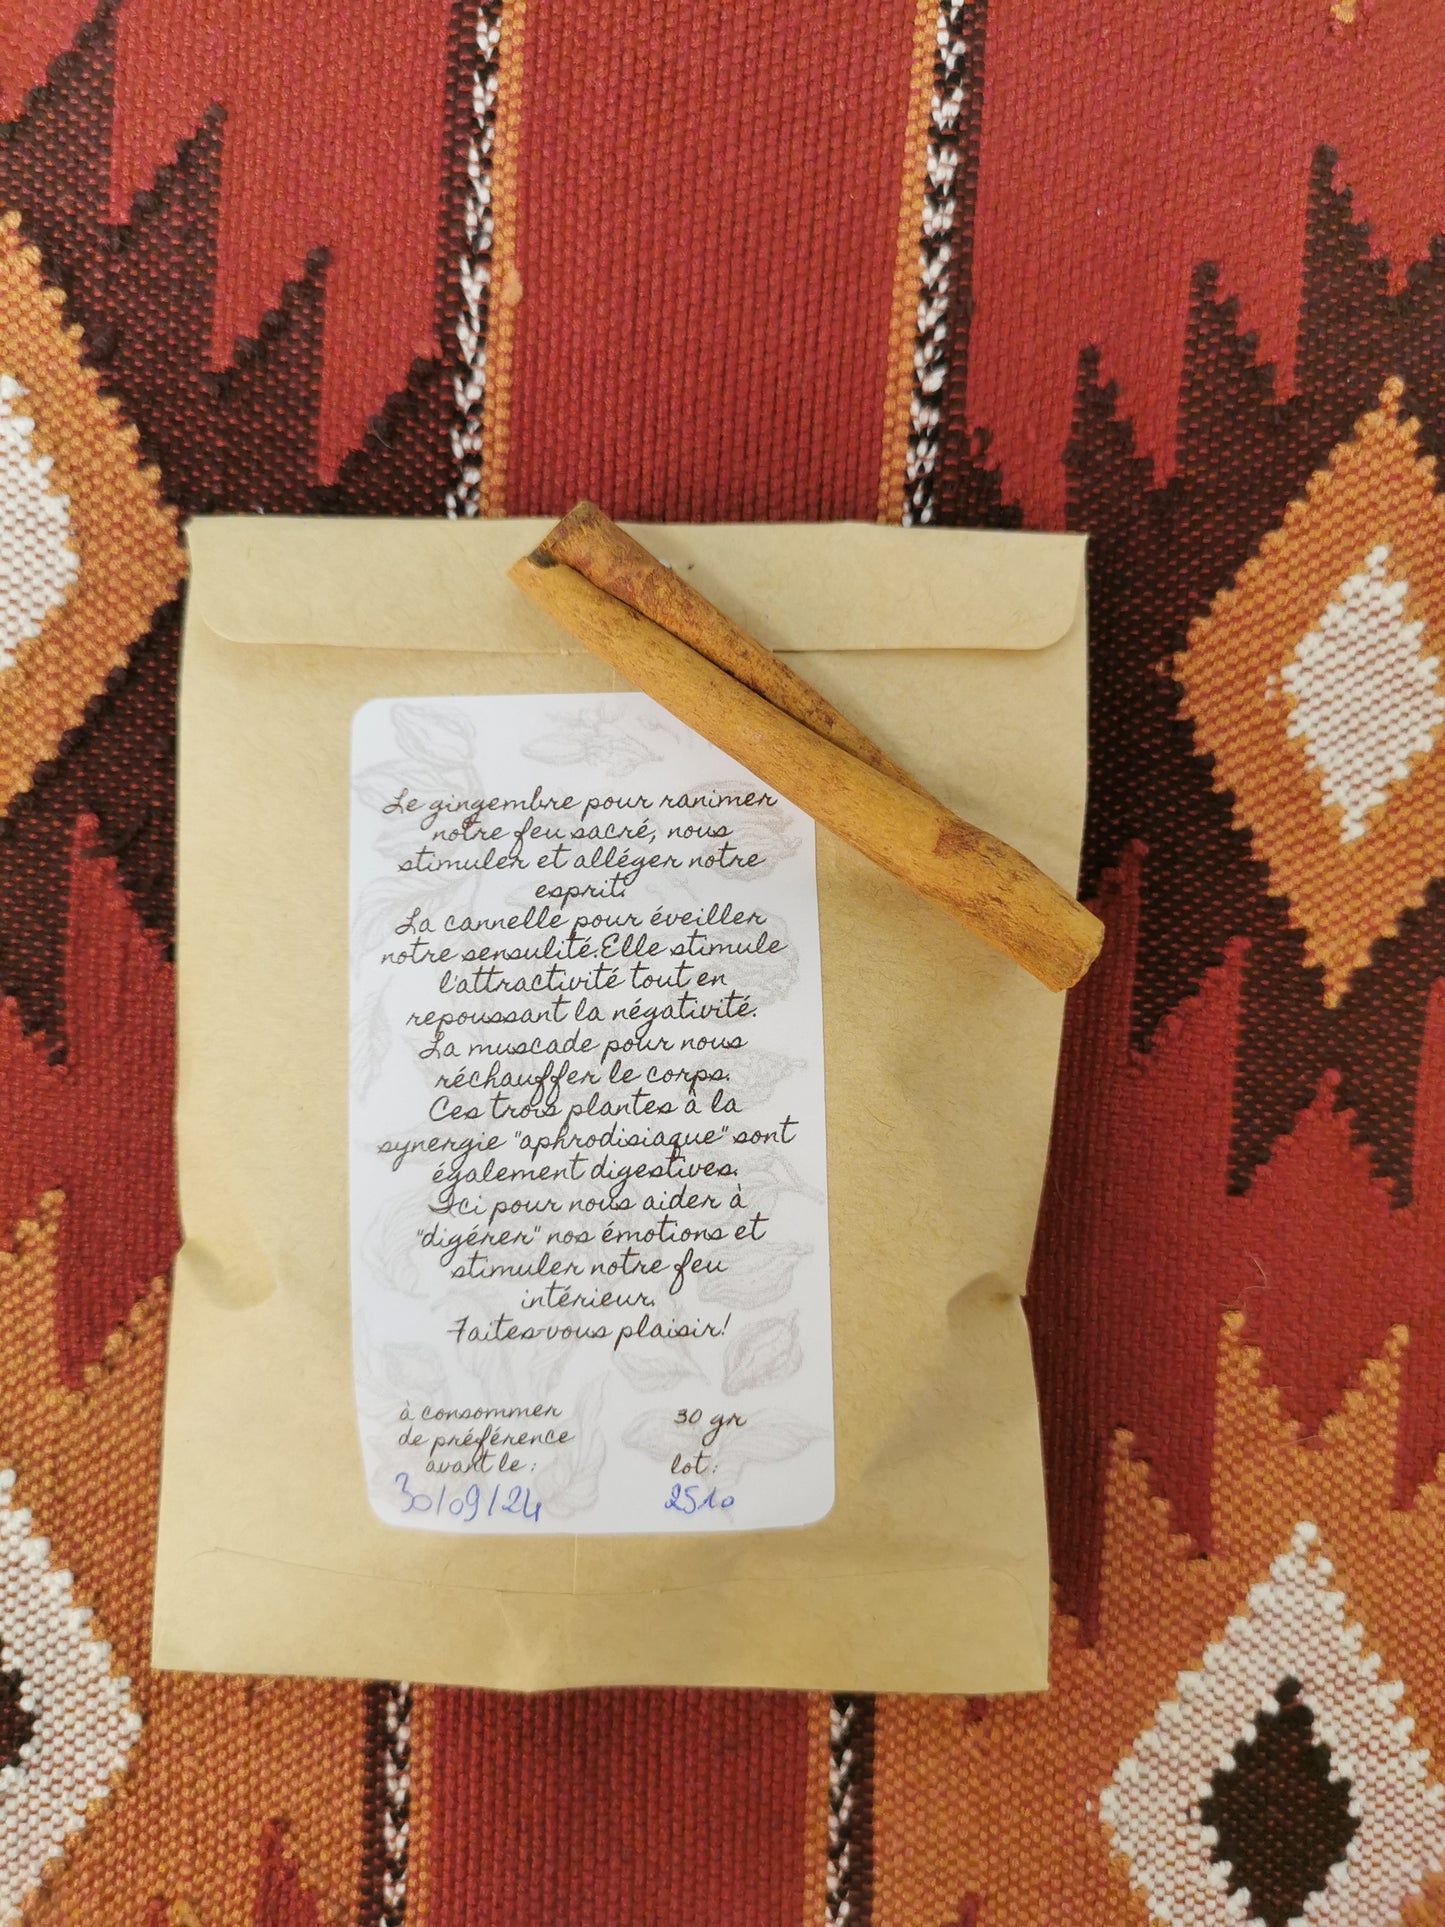 Le gingembre pour ranimer
notre feu sacré, nous
stimuler et alléger notre
esprit.
La cannelle pour éveiller
notre sensulité.Elle stimule
l'attractivité tout en
repoussant la négativité.
La muscade pour nous
réchauffer le corps.
Ces trois plantes à la
synergie "aphrodisiaque" sont
également digestives.
Ici pour nous aider à
"digérer" nos émotions et
stimuler notre feu
intérieur.
Faites-vous plaisir!
à consommer
de préférence
avant le :
30/09/24
30 gr
lot :
2510